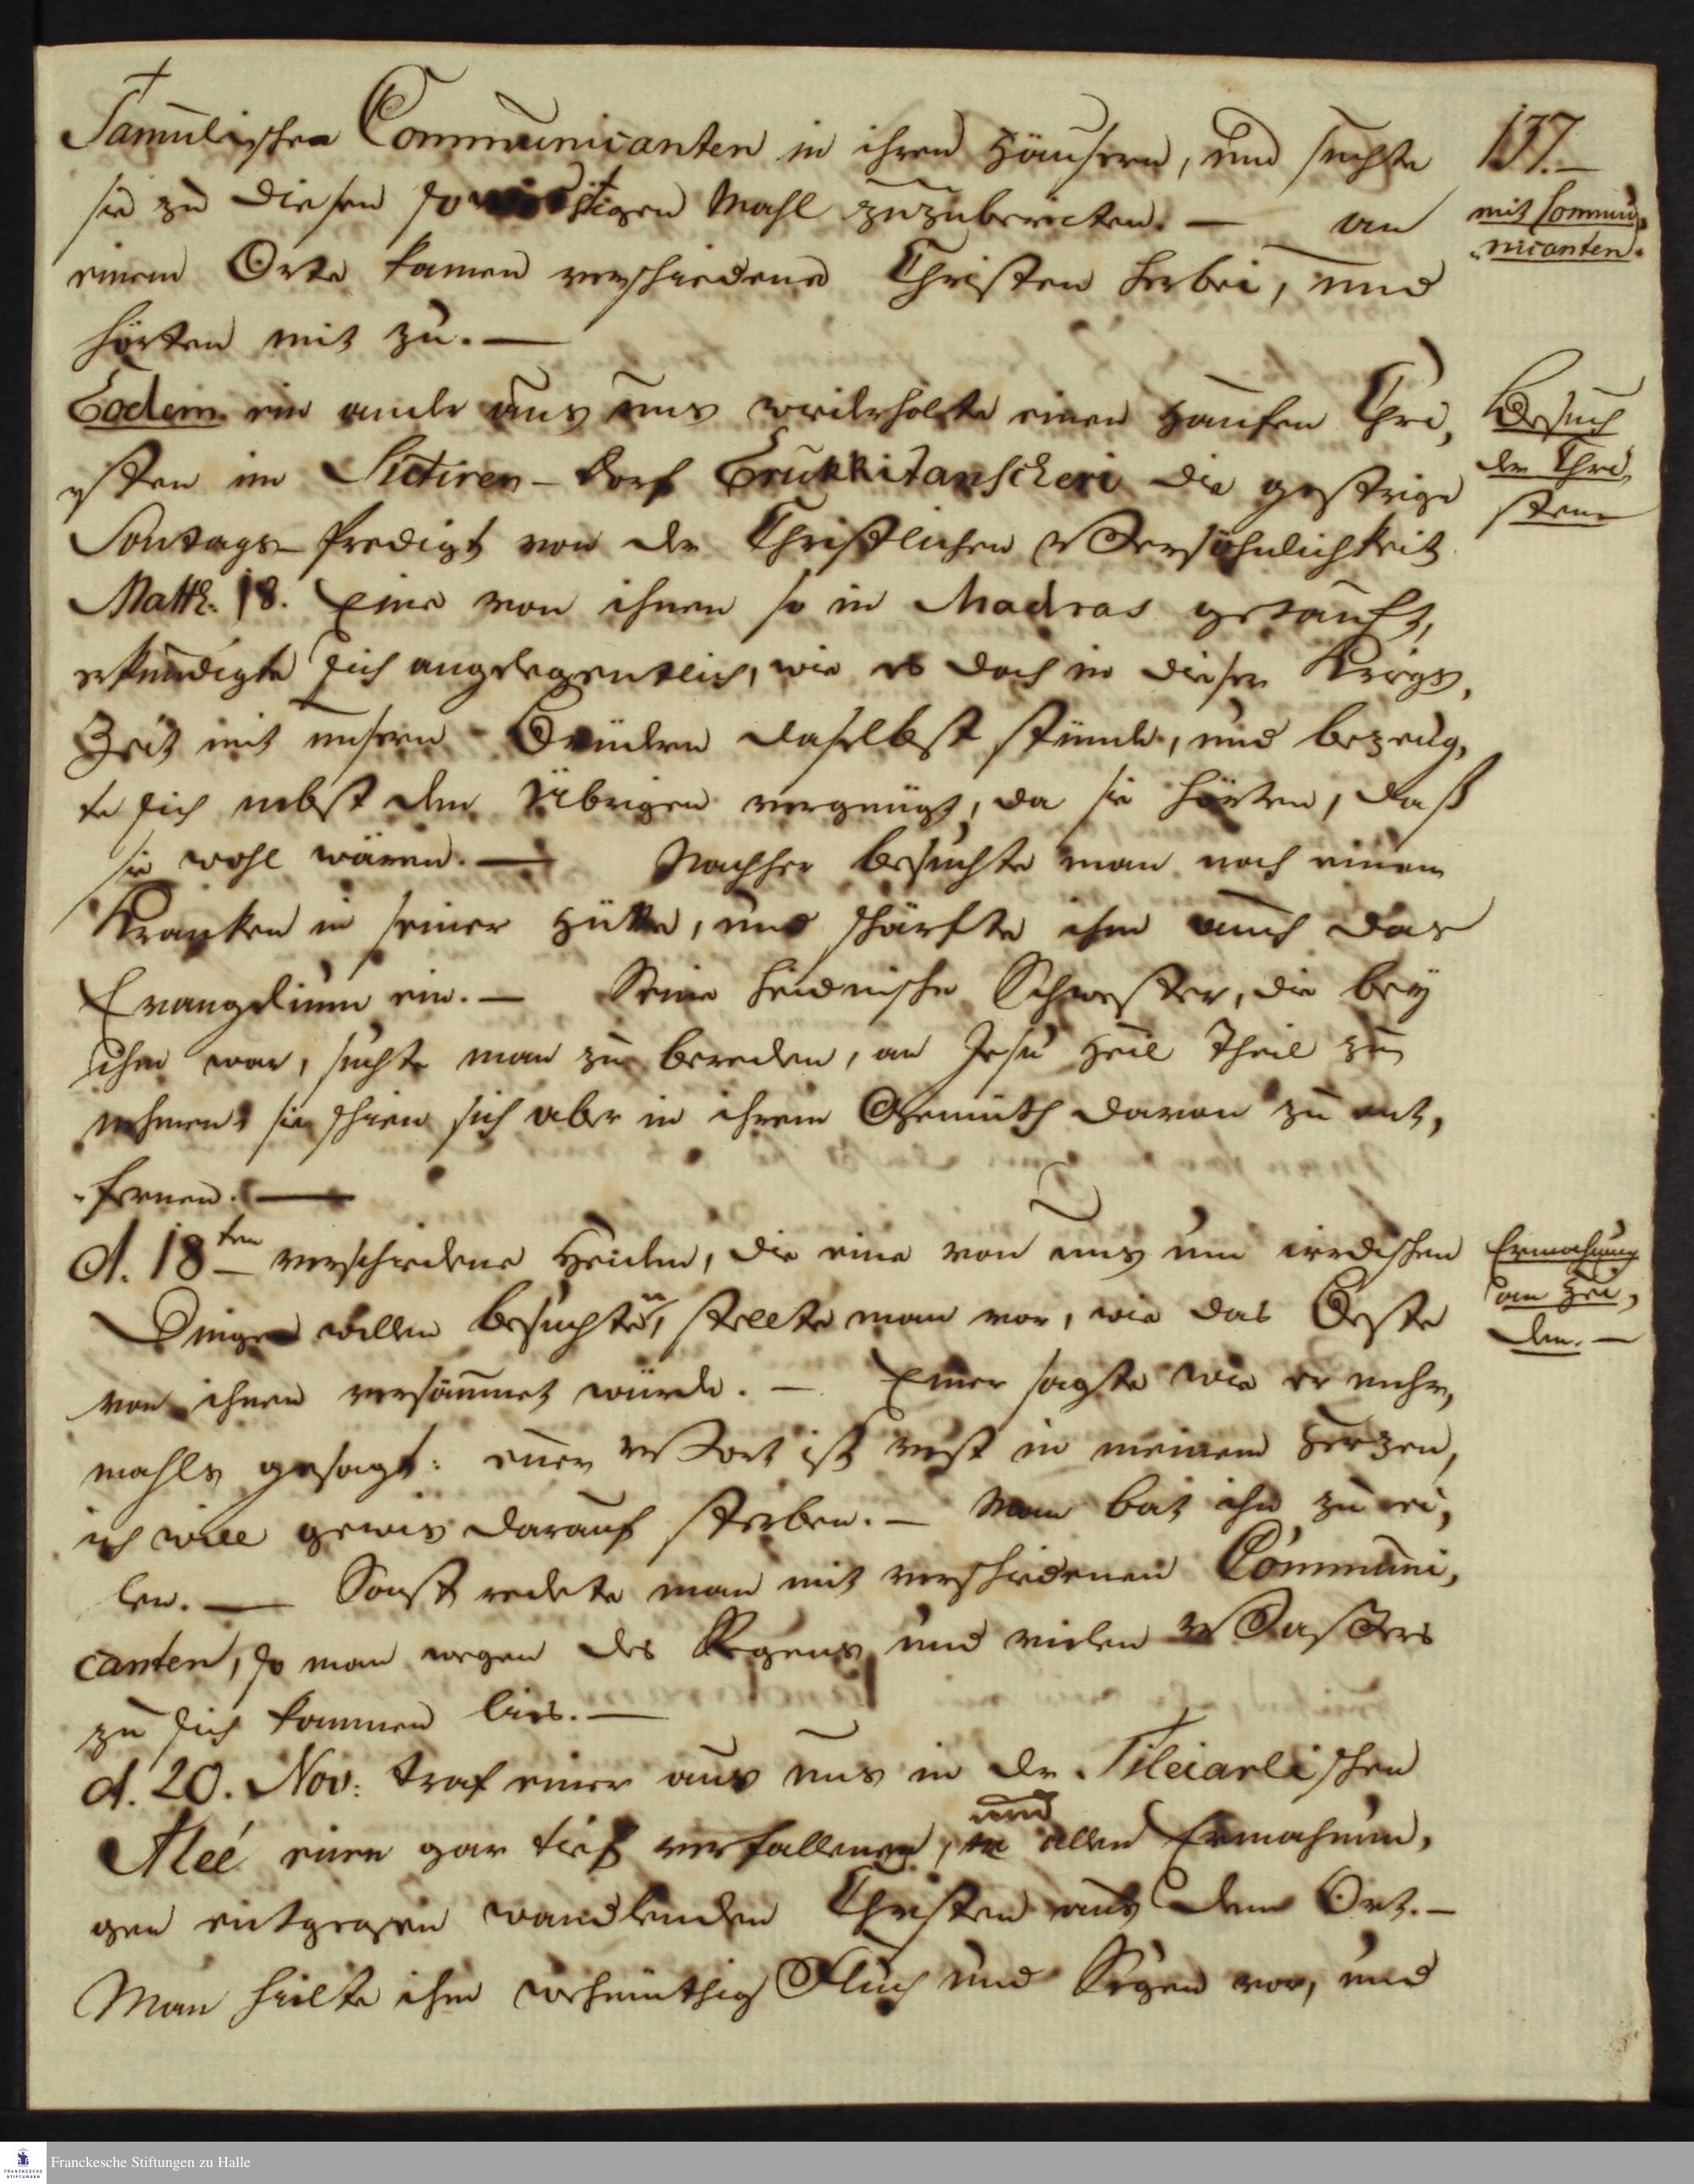 Tamulischen Communicanten in ihren Häusern, und suchte
137.
sie zu diesen so wichtigen Mahl zuzubereiten. — an
mit Commu,
nicanten.
einem Orte kamen verschiedene Christen herbei, und
hörten mit zu. —
Eodem ein ander aus uns wiederholte einen Haufen Chri,
Besuch
der Chri,
sten
sten im Sittiren-dorf Erukkitanscheri die gestrige
Sontags-Predigt von der Christlichen Versöhnlichkeit
Matth: 18. Eine von ihnen so in Madras getauft,
erkundigte sich angelegentlich, wie es doch in dieser Kriegs,
Zeit mit unsern Brüdern daselbst stünde, und bezeug,
te sich nebst den Übrigen vergnügt, da sie hörten, daß
sie wohl wären. — Nachher besuchte man noch einen
Kranken in seiner Hütte, und schärfte ihm auch das
Evangelium ein. — Seine heidnische Schwester, die bey
ihm war, suchte man zu bereden, an Jesu Heil Theil zu
nehmen; sie schien sich aber in ihrem Gemüth davon zu ent,
fernen. —
d. 18ten verschiedene Heiden, die eine von uns um irrdischen
Ermahnung
an Hei,
den. —
Dinge willen besuchten, stellte man vor, wie das Beste
von ihnen versäumet würde. — Einer sagte wie er mehr,
mahls gesagt: euer Wort ist vest in meinem Herzen,
ich will gewis darauf sterben. — Man bat ihn zu ei,
len. — Sonst redete man mit verschiedenen Communi,
canten, so man wegen des Regens und vielen Wassers
zu sich kommen lies. —
d. 20. Nov: traf einer aus uns in der Tileiarlischen
Aleé einen gar tief verfallenen, und allen Ermahnun,
gen entgegen wandlenden Christen aus dem Ort. —
Man hielte ihm wehmüthig Fluch und Segen vor, und
Franckesche Stiftungen zu Halle